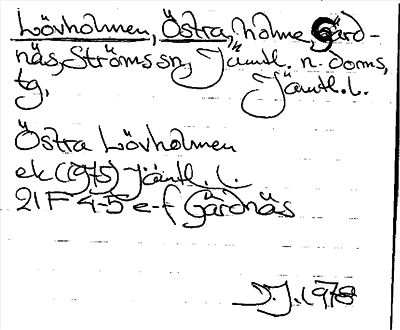 Lövholmen, Östra, holme, Gärd-
näs, Ströms sn, Jämtl. n. doms,
tg, Jämtl. l.
Östra Lövholmen
ek (1975) Jämtl. l.
21 F 4-5 e-f Gärdnäs
1978